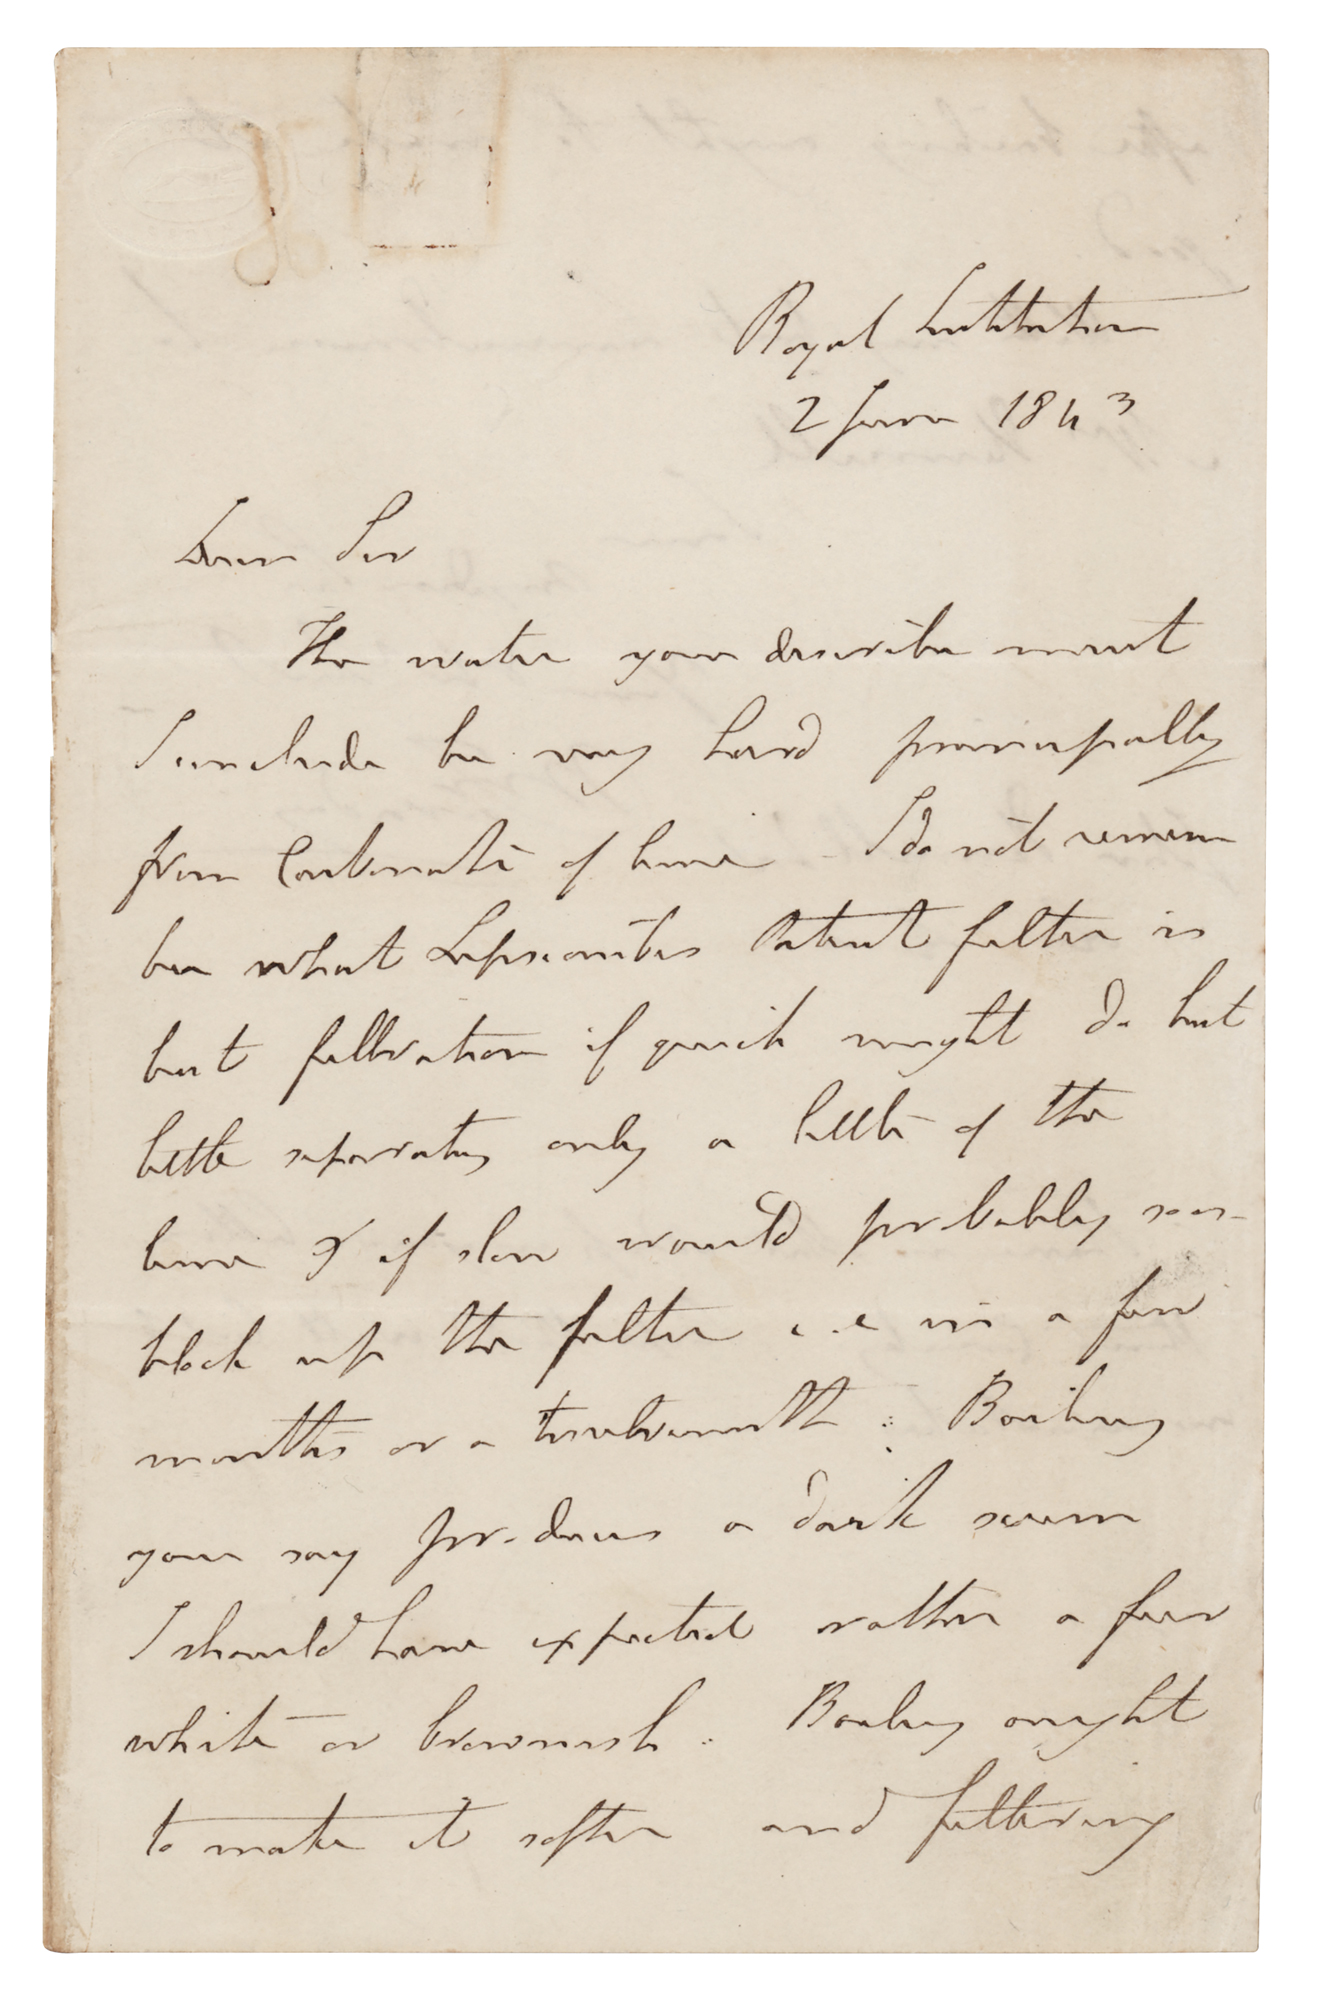 Royal Institution
2 June 1843
Dear Sir
The water you describe must
I conclude be very hard principally
from Carbonate of lime - I do not remem
ber what Lipscombes Patent filter is
but filtration if quick might do but
little separating only a little of the
lime & if slow would probably soon
block up the filter i.e in a few
months or a twelvemonth : Boiling
you say produces a dark scum
I should have expected rather a fur
white or brownish : Boiling ought
to make it softer and filtering